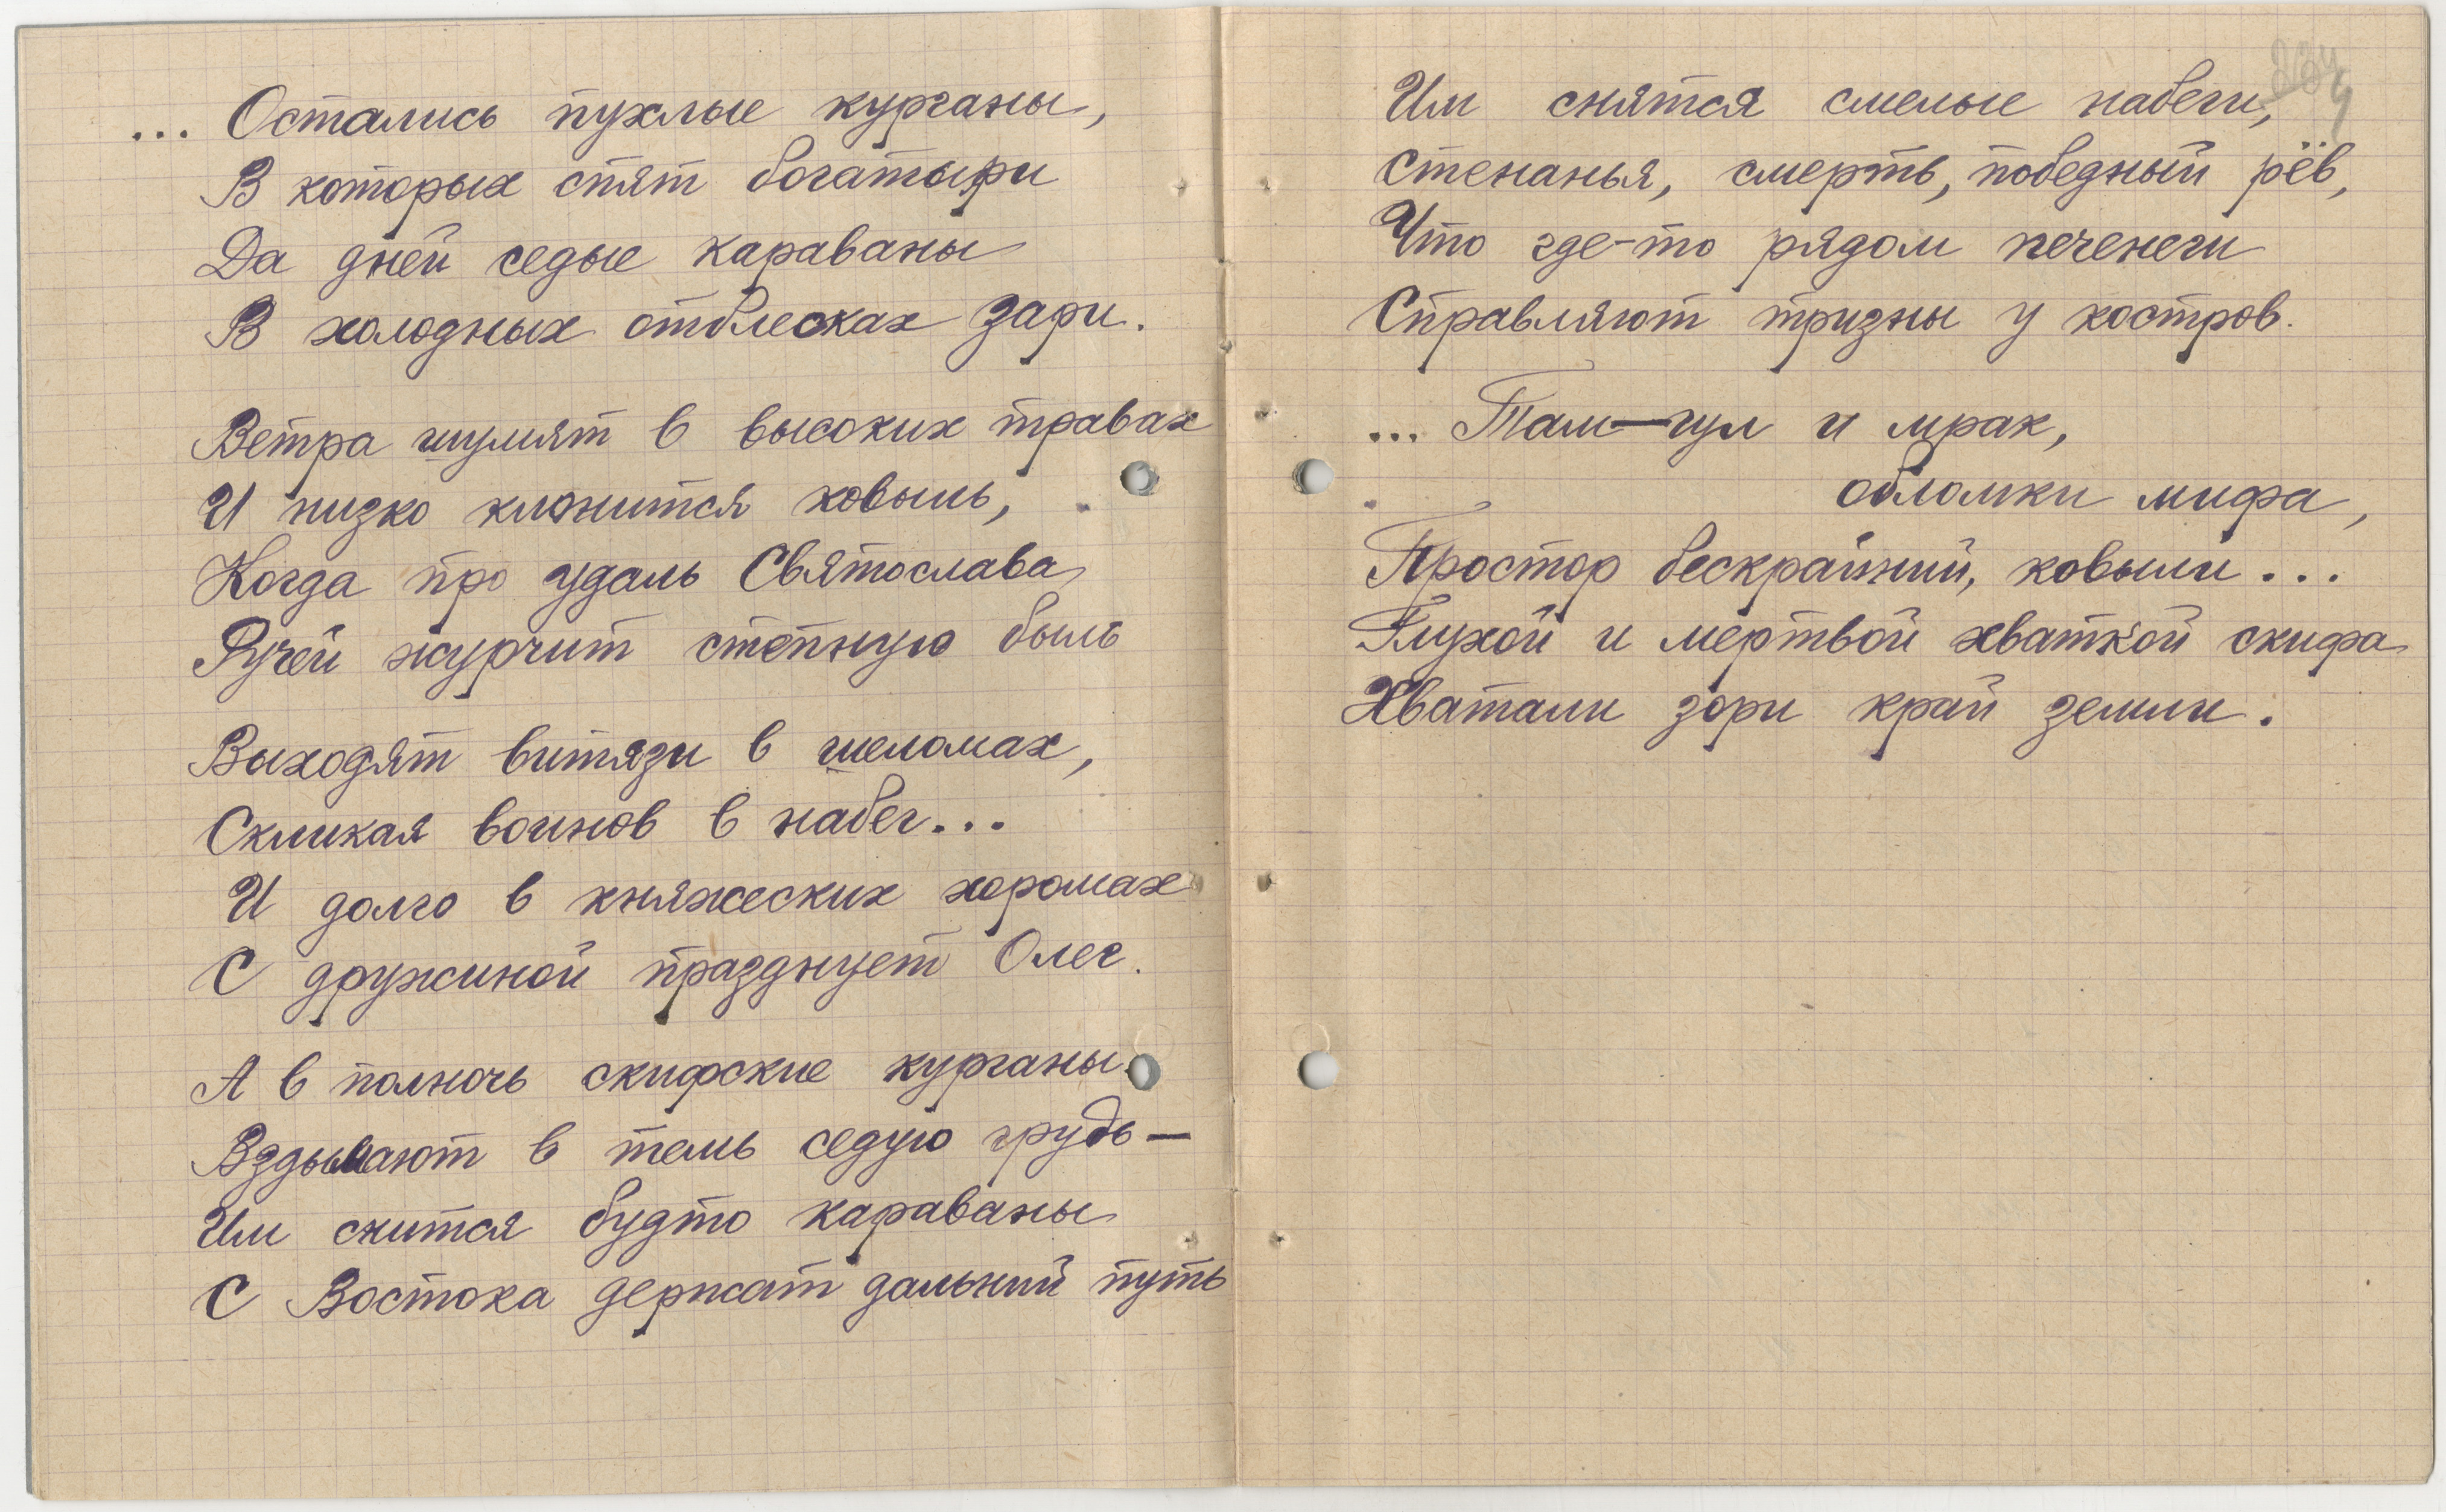 ... Остались пухлые курганы,
В которых спят богатыри
Да дней седые караваны
В холодных отблесках зари.
Ветра шумят в высоких травах
И низко клонится ковыль,
Когда про удаль Святослава
Ручей журчит степную быль
Выходят витязи в шеломах,
Скликая воинов в набег...
И долго в княжеских хоромах
С дружиной празднует Олег.
А в полночь скифские курганы
Вздымают в темь седую грудь —
Им снится будто караваны
С Востока держат дальний путь
Им снятся смелые набеги,
Стенанья, смерть, победный рёв,
Что где-то рядом печенеги
Справляют тризны у костров.
... Там — гул и мрак,
обломки мифа,
Простор бескрайний, ковыли...
Глухой и мёртвой хваткой скифа
Хватали зори край земли.